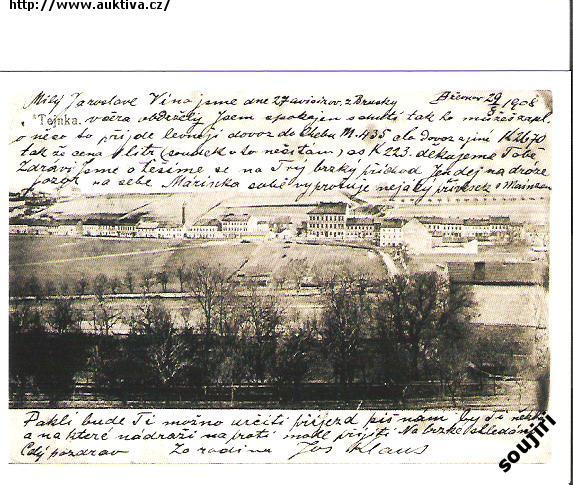 http://www.auktiva.cz/
Milý Jaroslave Vína jsme dne 27 z Brusky 29 1908
Tejnka. včera obdrželi Jsem spokojen tak to můžeš
o něco to přijde levněji dovoz do Chebu M. 4.35 a dovoz K 26.70
tak že cena 1 litr (soudek v to nečítám) as K 2.23. děkujeme Tobě
Zdraví Jsme a těšíme se na Tvůj brzký příchod Jen dej na droze
pozor na sebe Mařinka sobě vyprošuje nejaký přívěsek
Pakli bude Ti možno určiti příjezd piš nám by Ti někdo
a na které nádraží na proti mohl přijíti Na brzké shledání
Celý pozdrav Za rodinu Jos Klaus
soujiri